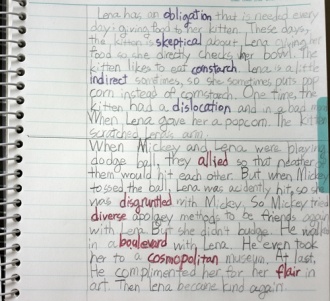 Lena has an obligation that is needed every
day: giving food to her kitten. These days,
the kitten is skeptical about Lena giving her
food so she directly checks her bowl. The
kitten likes to eat constarch. Lena is a little
indirect sometimes, so she sometimes puts pop
corn instead of cornstarch. One time, the
kitten had a dislocation and in a bad
When Lena gave her a popcorn. The kitten
scratched Lena's arm.
When Mickey and Lena were playing
dodge ball, they allied so that neather of
them would hit each other. But when Mickey
tossed the ball, Lena was acidently hit, so she
was disgruntled with Mickey, So Mickey tried
diverse apology methods to be friends again
with Lena. But she didn't budge. He walked
in a boulevard with Lena. He even took
her to a cosmopolitan museum. At last,
He complimented her for her flair in
art. Then Lena became kind again.